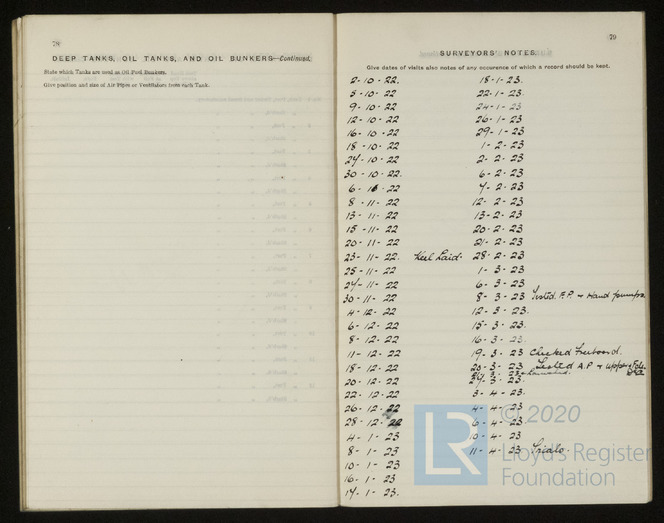 78
DEEP TANKS, OIL TANKS, AND OIL BUNKERS—Continued.
State which Tanks are used as Oil Fuel Bunkers.
Give position and size of Air Pipes or Ventilators from each Tank.
79
SURVEYORS' NOTES.
Give dates of visits also notes of any occurence of which a record should be kept.
2-10-22.
5-10-22
9-10-22
12-10-22
16-10-22
18-10-22
24-10-22
30-10-22.
6-11-22
8-11-22
13-11-22
15-11-22
20-11-22
23-11-22. Keel Laid.
25-11-22
27-11-22
30-11-22
4-12-22
6-12-22
8-12-22
11-12-22
18-12-22
20-12-22
22-12-22
26-12-22
28-12-22
4-1-23
8-1-23
10-1-23
16-1-23
17-1-23.
18-1-23.
22-1-23.
24-1-23
26-1-23
29-1-23
1-2-23
2-2-23
6-2-23
7-2-23
12-2-23
13-2-23
20-2-23
21-2-23
28-2-23
1-3-23
6-3-23
8-3-23 Tested F.P. & Hand pumps.
12-3-23.
15-3-23.
16-3-23.
19-3-23 Checked Freeboard.
20-3-23 Tested A.P & Upper
Launched.
27-3-23.
3-4-23.
4-4-23
6-4-23
10-4-23
11-4-23 Trials.
© 2020
LR
Lloyd's Register
Foundation